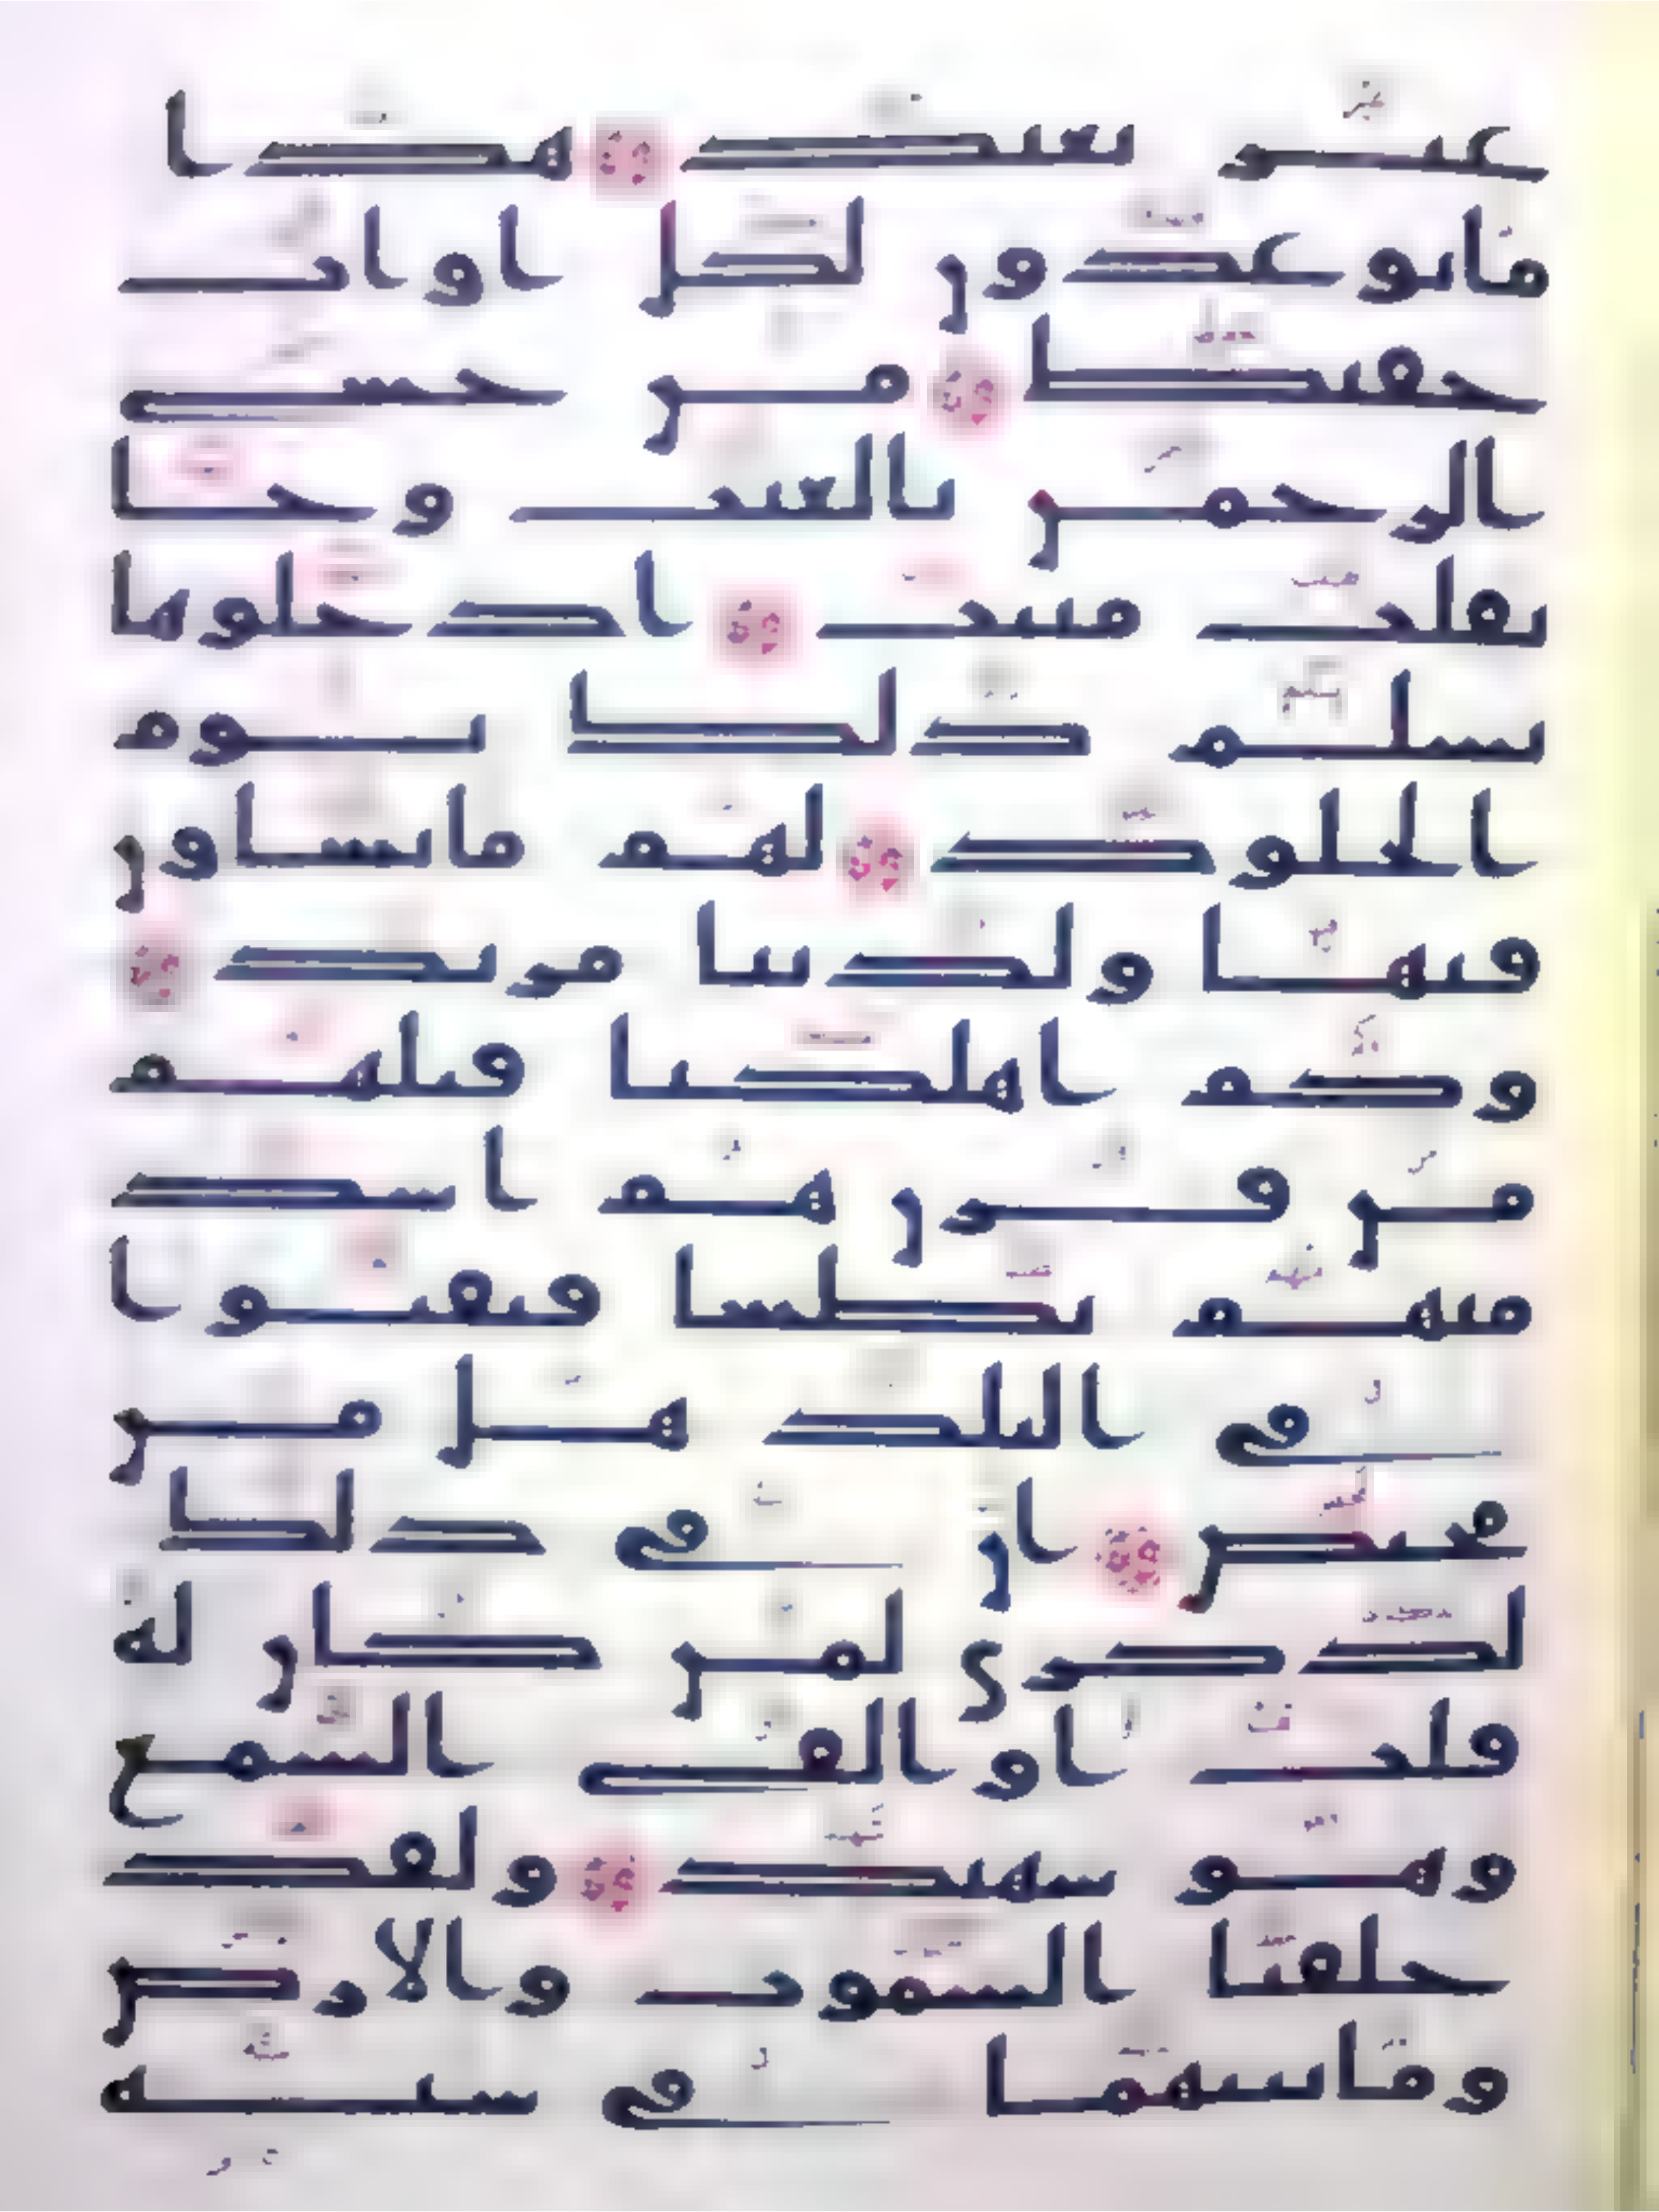 غير بعيد هذا
ما توعدون لكل اواب
حفيظ من خشي
الرحمن بالغيب وجا
بقلب منيب ادخلوها
بسلم ذلك يوم
الخلود لهم ما يشاون
فيها ولدينا مزيد
وكم اهلكنا قبلهم
من قرن هم اشد
منهم بطشا فنقبوا
في البلد هل من
محيص ان في ذلك
لذكرى لمن كان له
قلب او القى السمع
وهو شهيد ولقد
خلقنا السموت والارض
وما بينهما في ستة